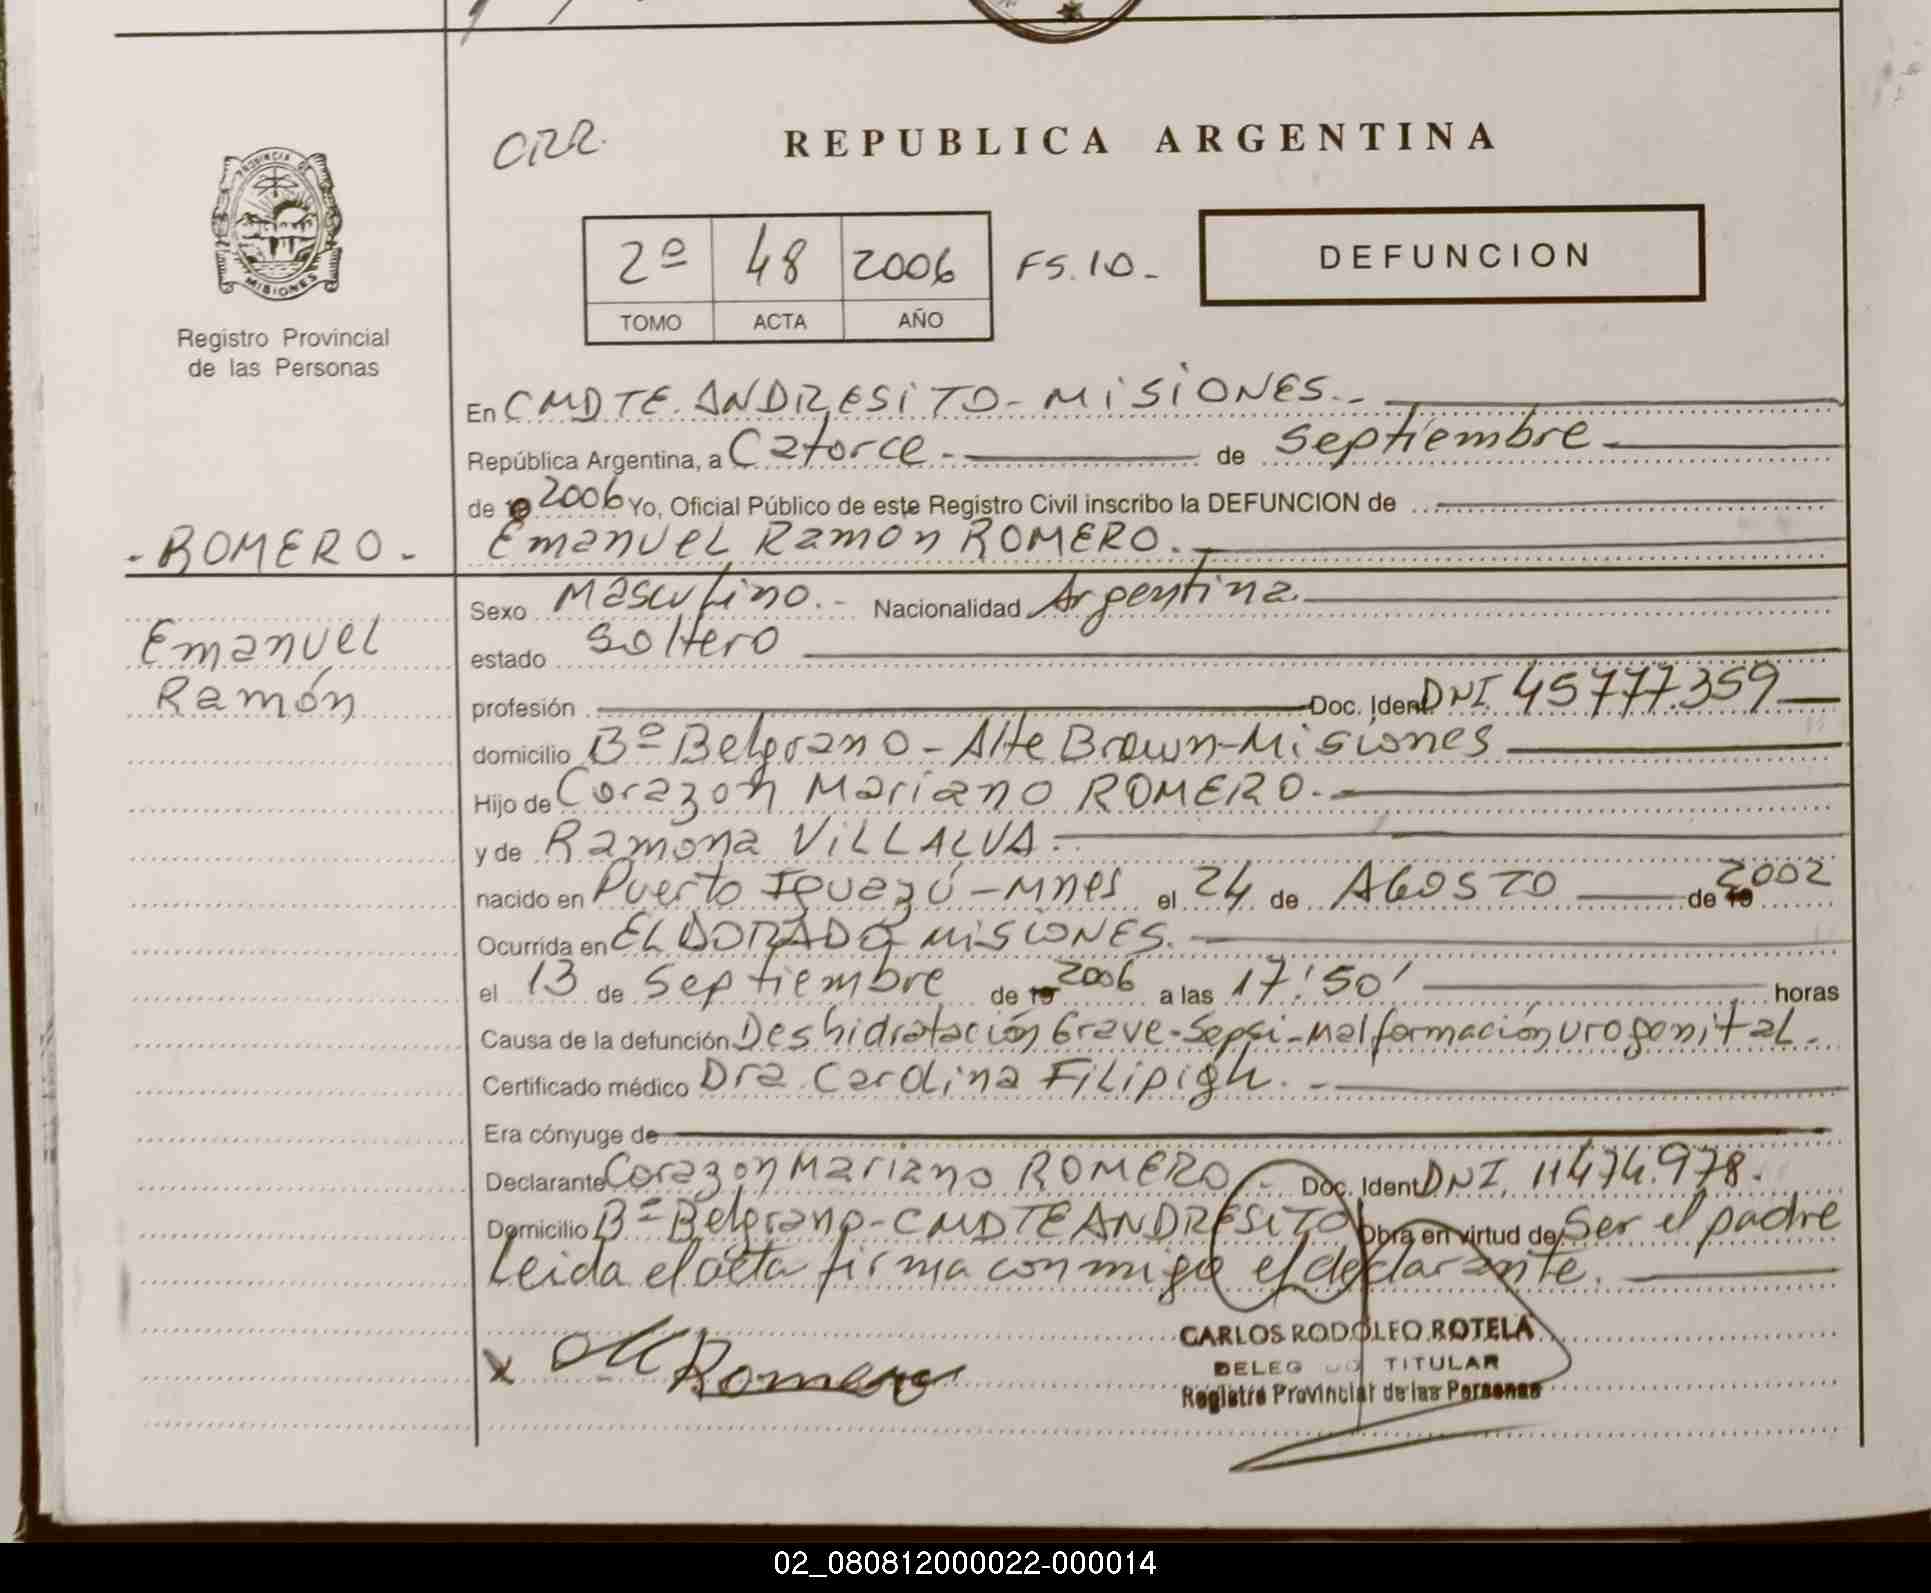 CRR.
REPUBLICA ARGENTINA
PROVINCIA DE
MISIONES
Registro Provincial
de las Personas
2º 48 2006 FS.10.-
TOMO ACTA AÑO
DEFUNCION
En CMDTE. ANDRESITO - MISIONES.-
República Argentina, a Catorce.- de Septiembre.-
de 2006 Yo, Oficial Público de este Registro Civil inscribo la DEFUNCION de
- ROMERO -
Emanuel Ramón ROMERO.-
Emanuel
Ramón
Sexo Masculino.- Nacionalidad Argentina.
estado Soltero
profesión Doc. Ident. DNI. 45777.359
domicilio Bº Belgrano - Alte Brown - Misiones
Hijo de Corazon Mariano ROMERO.-
y de Ramona VILLALVA.-
nacido en Puerto Iguazú - Mnes el 24 de AGOSTO de 19 2002
Ocurrida en EL DORADO MISIONES.
el 13 de Septiembre de 19 2006 a las 17:50' horas
Causa de la defunción Deshidratación Grave - Sepsi - Malformación urogenital.
Certificado médico Dra. Carolina Filipigh.-
Era cónyuge de
Declarante Corazon Mariano ROMERO.- Doc. Ident. DNI. 11474.978.
Domicilio Bº Belgrano - CMDTE ANDRESITO Obra en virtud de Ser el padre
Leida el acta firma conmigo el declarante.
x Romero
CARLOS RODOLFO ROTELA
DELEGADO TITULAR
Registro Provincial de las Personas
02_080812000022-000014